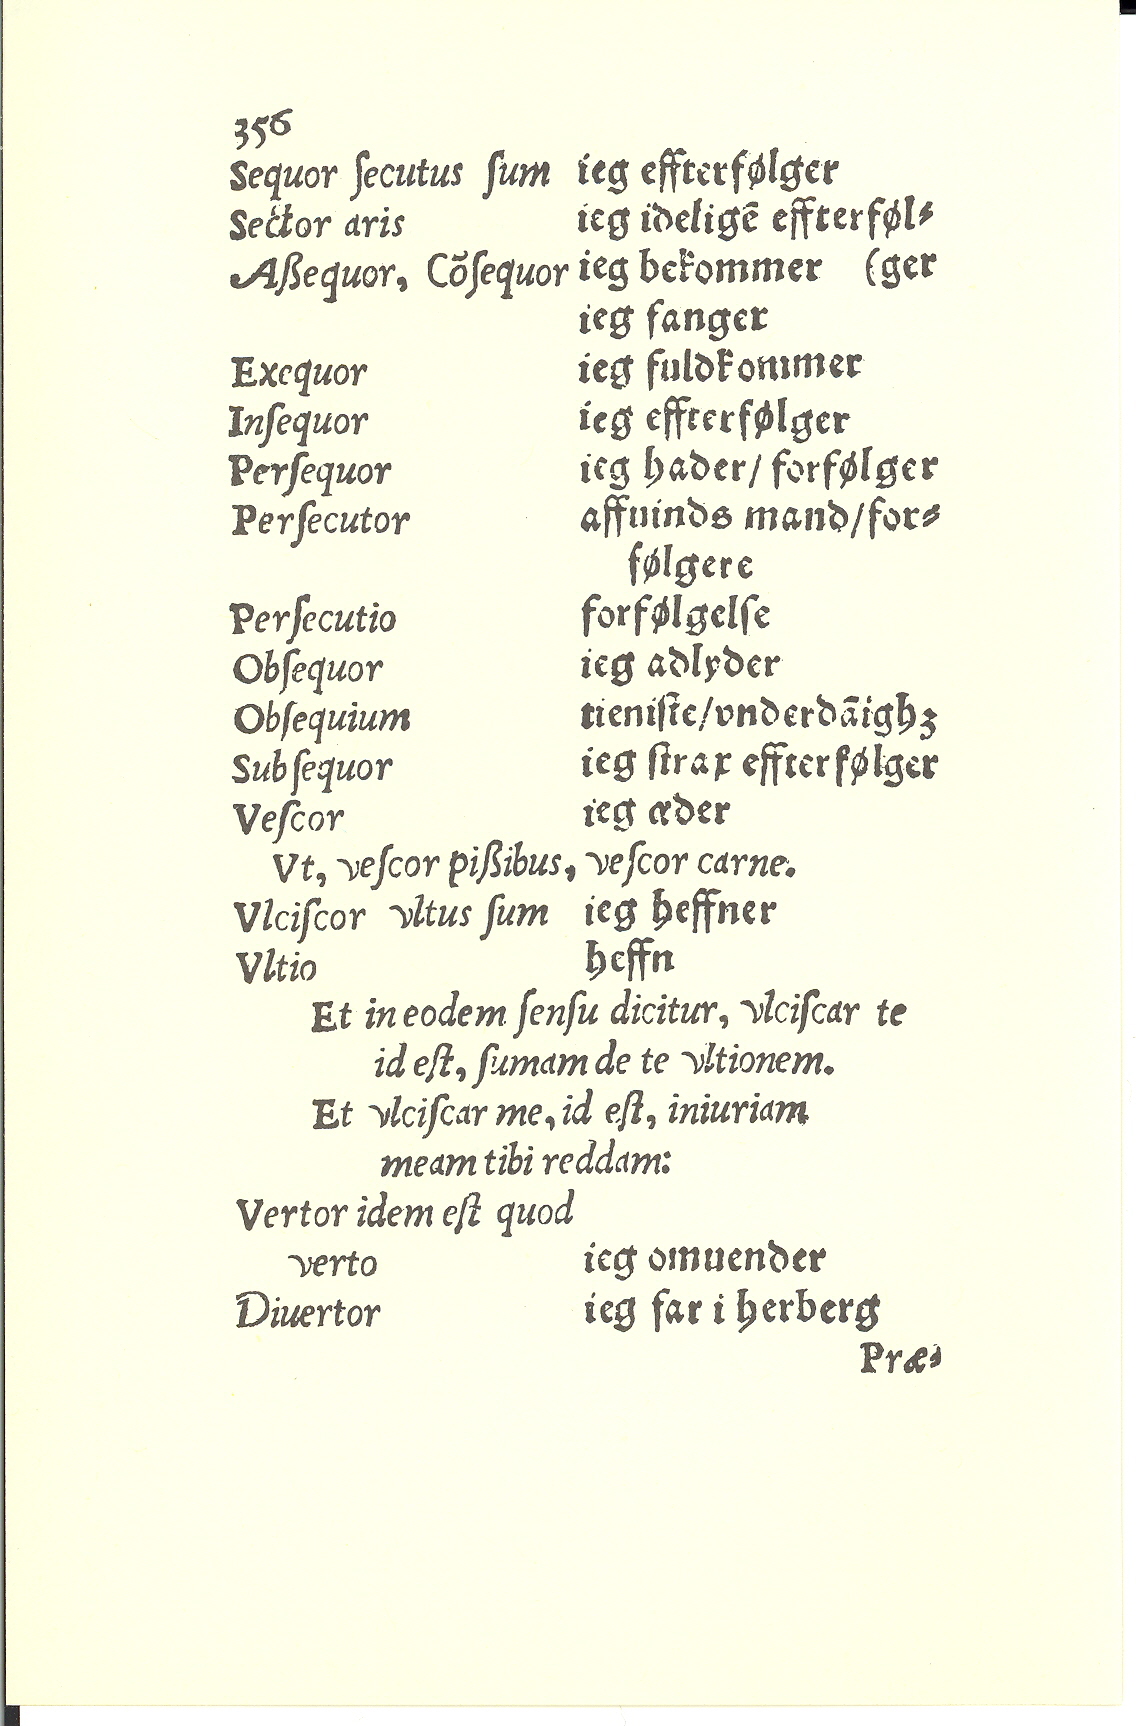 356
Sequor ſecutus ſum ieg effterfølger
Sector aris ieg ideligē effterføl⸗
Aßequor, Cõſequor ieg bekommer (ger
ieg fanger
Exequor ieg fuldkommer
Inſequor ieg effterfølger
Perſequor ieg hader/ forfølger
Perſecutor affuinds mand/for⸗
følgere
Perſecutio forfølgelſe
Obſequor ieg adlyder
Obſequium tieniſte/vnderdāighꝫ
Subſequor ieg ſtrax effterfølger
Veſcor ieg æder
Vt, veſcor pißibus, veſcor carne.
Vlciſcor vltus ſum ieg heffner
Vltio heffn
Et in eodem ſenſu dicitur, vlciſcar te
id eſt, ſumam de te vltionem.
Et vlciſcar me, id eſt, iniuriam
meam tibi reddam:
Vertor idem eſt quod
verto ieg omuender
Diuertor ieg far i herberg
Præ⸗